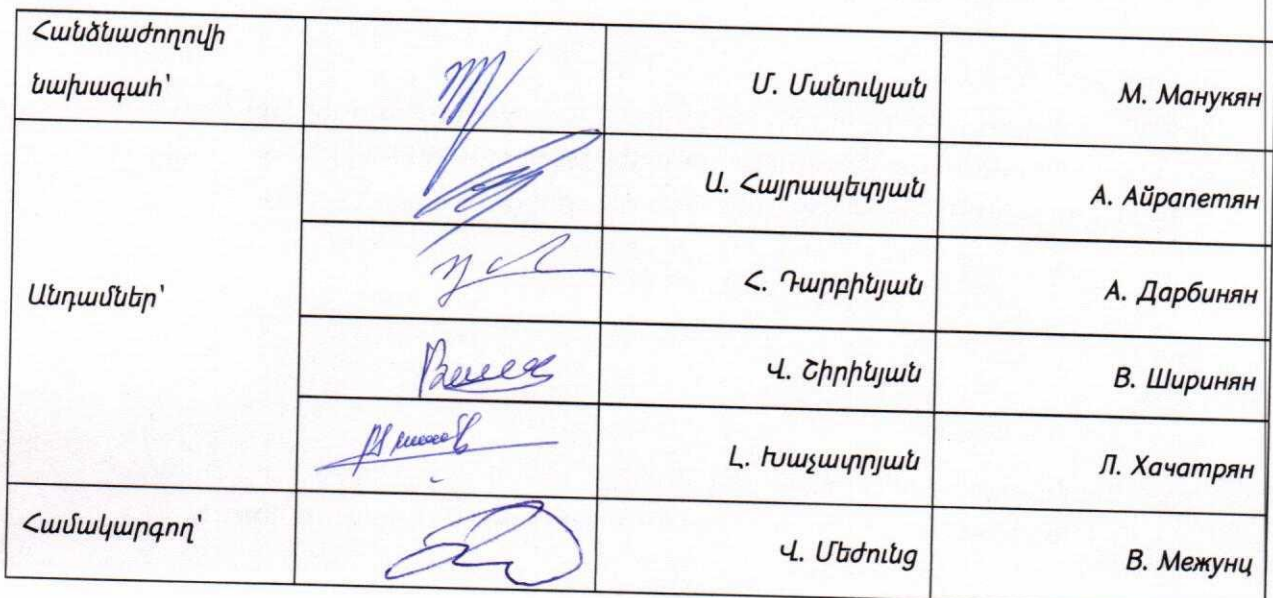 Հանձնաժողովի
նախագահ՝
Մ. Մանուկյան
М. Манукян
Ա. Հայրապետյան
А. Айрапетян
Անդամներ՝
Հ. Դարբինյան
А. Дарбинян
Վ. Շիրինյան
В. Ширинян
Լ. Խաչատրյան
Л. Хачатрян
Համակարգող՝
Վ. Մեժունց
В. Межунц